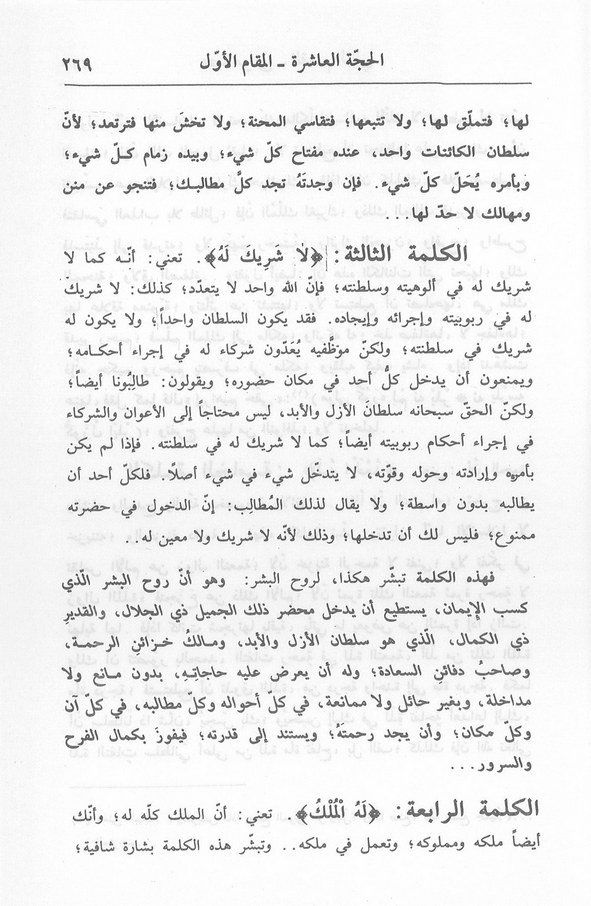 الحجّة العاشرة - المقام الأوّل ٢٦٩
لها؛ فتملّق لها؛ ولا تتبعها؛ فتقاسي المحنة؛ ولا تخشَ منها فترتعد؛ لأنّ
سلطان الكائنات واحد، عنده مفتاح كلّ شيء؛ وبيده زمام كـلّ شيء؛
وبأمره يُحَلّ كلّ شيء. فإن وجدتَهُ تجد كلَّ مطالبـك؛ فتنجو عن منن
ومهالك لا حدّ لها...
الكلمة الثالثة: ﴿لَا شَرِيكَ لَهُ﴾. تعني: أنّـه كما لا
شريك له في ألوهيته وسلطنته؛ فإنّ الله واحد لا يتعدّد؛ كذلك: لا شريك
له في ربوبيته وإجرائه وإيجاده. فقد يكون السلطان واحداً؛ ولا يكون له
شريك في سلطنته؛ ولكنّ موَظَّفيه يُعَدّون شركاء له في إجراء أحكامـه؛
ويمنعون أن يدخل كلُّ أحد في مكان حضوره؛ ويقولون: طالِبُونا أيضاً؛
ولكنّ الحقّ سبحانه سلطانَ الأزل والأبد، ليس محتاجاً إلى الأعوان والشركاء
في إجراء أحكام ربوبيته أيضاً؛ كما لا شريك له في سلطنته. فإذا لم يكن
بأمره وإرادته وحوله وقوّته، لا يتدخّل شيء في شيء أصلًا. فلكلّ أحد أن
يطالبه بدون واسطة؛ ولا يقال لذلك المُطالِب: إنّ الدخول في حضرته
ممنوع؛ فليس لك أن تدخلها؛ وذلك لأنّه لا شريك ولا معين له..
فهذه الكلمة تبشّر هكذا، لروح البشر: وهو أنّ روح البشر الّذي
كسب الإيمان، يستطيع أن يدخل محضر ذلك الجميل ذي الجلال، والقديرِ
ذي الكمال، الذي هو سلطان الأزل والأبد، ومـالكُ خـزائنِ الرحمـة،
وصاحبُ دفائنِ السعادة؛ وله أن يعرض عليه حاجاتـه، بدون مـانع ولا
مداخلة، وبغير حائل ولا ممانعة، في كلّ أحواله وكلّ مطالبه، في كلّ آن
وكلّ مكان؛ وأن يجد رحمتَهُ؛ ويستند إلى قدرته؛ فيفوزَ بكمال الفرح
والسرور...
الكلمة الرابعة: ﴿لَهُ الْمُلْكُ﴾. تعني: أنّ الملك كلّه له؛ وأنّك
أيضاً ملكه ومملوكه؛ وتعمل في ملكه.. وتبشّر هذه الكلمة بشارة شافية؛